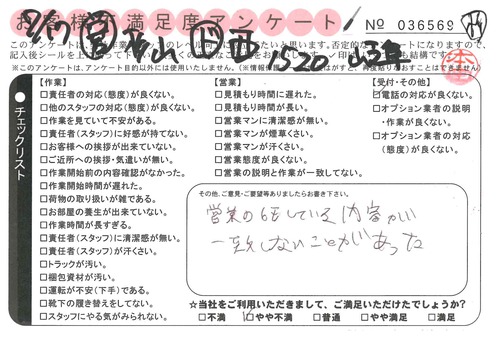 お客様不満足度アンケート
№ 036569
このアンケートは、
※このアンケートは、アンケート目的以外には使用いたしません。
チェックリスト
【作業】
□責任者の対応(態度)が良くない。
□他のスタッフの対応(態度)が良くない。
□作業を見ていて不安がある。
□責任者(スタッフ)に好感が持てない。
□お客様への挨拶が出来ていない。
□ご近所への挨拶・気遣いが無い。
□作業開始前の内容確認がなかった。
□作業開始時間が遅れた。
□荷物の取り扱いが雑である。
□お部屋の養生が出来ていない。
□作業時間が長すぎる。
□責任者(スタッフ)に清潔感が無い。
□責任者(スタッフ)が汗くさい。
□トラックが汚い。
□梱包資材が汚い。
□運転が不安(下手)である。
□靴下の履き替えをしてない。
□スタッフにやる気がみられない。
【営業】
□見積もり時間に遅れた。
□見積もり時間が長い。
□営業マンに清潔感が無い。
□営業マンが煙草くさい。
□営業マンが汗くさい。
□営業態度が良くない。
□営業の説明と作業が一致してない。
【受付・その他】
□電話の対応が良くない。
□オプション業者の説明
・作業が良くない。
□オプション業者の対応
(態度)が良くない。
その他、ご意見・ご要望等ありましたらお書き下さい。
営業の
している内容が
一致しないことがあった
☆当社をご利用いただきまして、ご満足いただけたでしょうか?
□不満 □やや不満 □普通 □やや満足 □満足